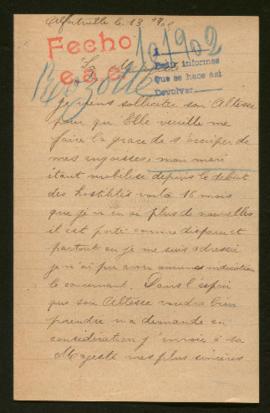 Alfortville le 13
Fecho
191902
Pedir informes
que se hace así
Devolver
e.s.e.
je viens solliciter son Altesse
pour qu' Elle veuille me
faire la grace de s'occuper de
mes angoisses, mon mari
étant mobilisé depuis le début
des hostilités voila 16 mois
que je n'en ai plus de nouvelles
il est porté comme disparu et
partout ou je me suis adressée
je n'ai pu avoir aucunes indication
le concernant. Dans l'espoir
que son Altesse voudra bien
prendre ma demande en
considération j'envoie à sa
Majesté mes plus sincères